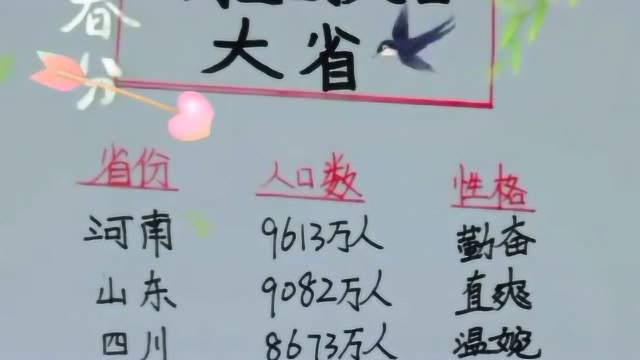 春分
大省
省份 人口数 性格
河南 9613万人 勤奋
山东 9082万人 直爽
四川 8673万人 温婉